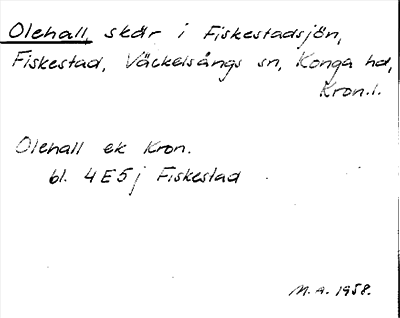 Olehall, skär i Fiskestadsjön,
Fiskestad, Väckelsångs sn, Konga hd,
Kron.l.
Olehall ek Kron.
bl. 4E5j Fiskestad
M.A. 1958.